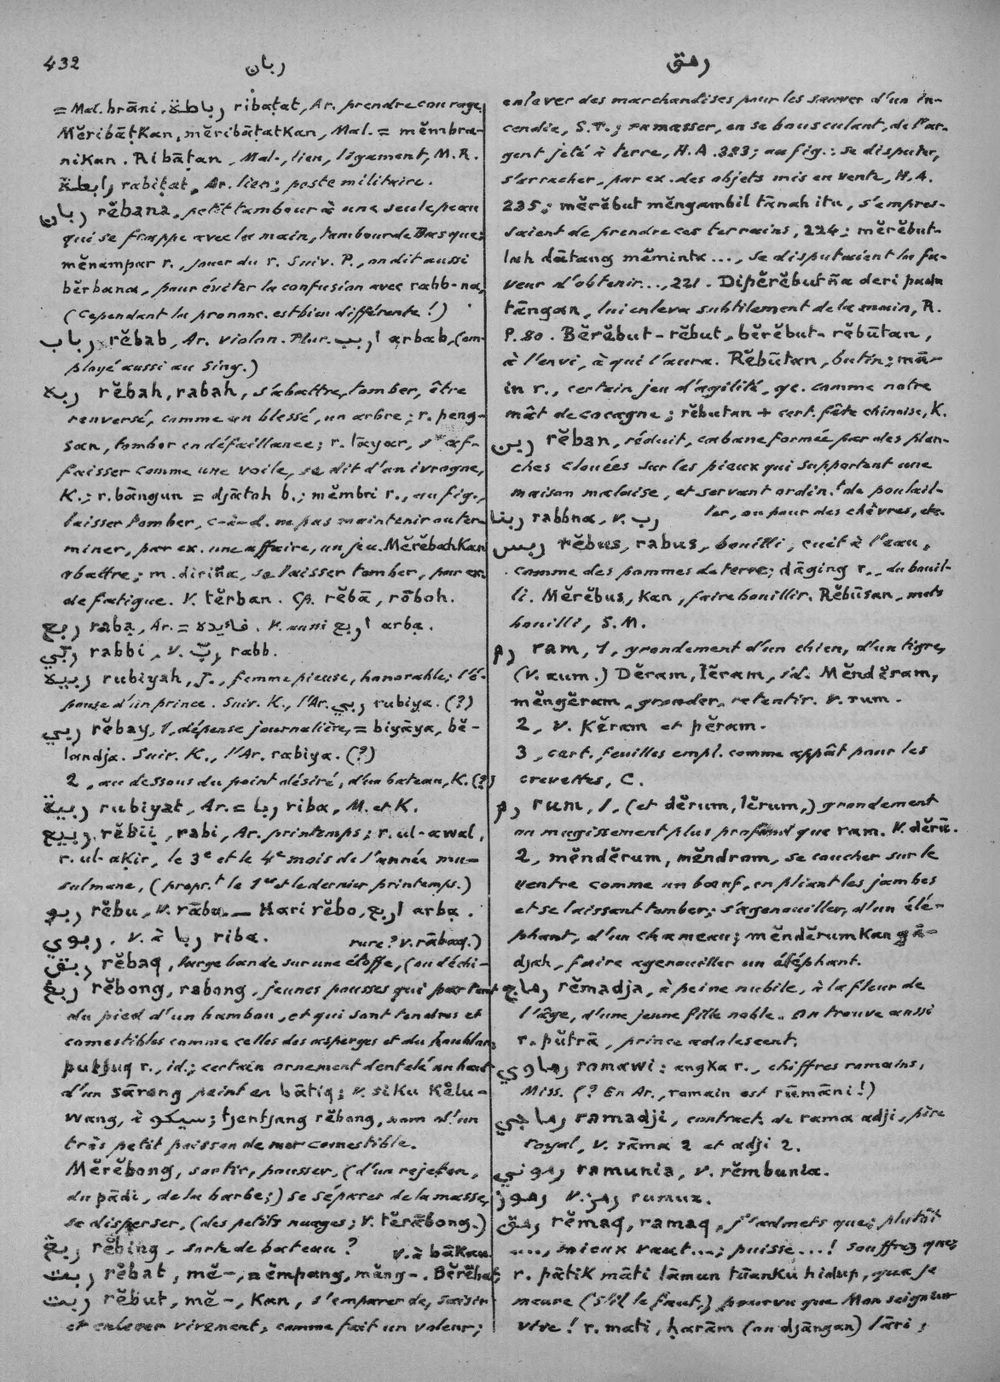 432
ربان
رمق
= Mal. brāni. رباطة ribaṭat, Ar. prendre courage,
Mĕribāṭkan, mĕribāṭatkan, Mal. = mĕmbra-
nikan. Ribāṭan, Mal., lien, ligament, M.R.
رابطة rabiṭat, Ar. lien; poste militaire.
ربان rĕbana, petit tambour à une seule peau
qui se frappe avec la main, tambour de Basque;
mĕnampar r., jouer du r. Suiv. P., on dit aussi
bĕrbana, pour éviter la confusion avec rabb-na,
(Cependant la prononc. est bien différente!)
رباب rĕbab, Ar. violon. Plur. ارب arbab, (em-
ployé aussi au Sing.)
ربه rĕbah, rabah, s'abattre, tomber, être
renversé, comme un blessé, un arbre; r. peng-
san, tomber en défaillance; r. lāyar, s'af-
faisser comme une voile, se dit d'un ivrogne,
K.; r. bāngun = djātoh b.; mĕmbri r., au fig.,
laisser tomber, c-à-d. ne pas maintenir ou ter-
miner, par ex. une affaire, un jeu. Mĕrĕbahkan
abattre; m. diriña, se laisser tomber, par ex.
de fatigue. V. tĕrban. Cp. rĕbā, rōboh.
ربع raba, Ar. = فائيده. V. aussi اربع arba.
ربّي rabbi, V. ربّ rabb.
ربيه rubiyah, J., femme pieuse, honorable; l'é-
pouse d'un prince. Suiv. K., l'Ar. ربي rubiya. (?)
ربي rĕbay, 1, dépense journalière, = biyāya, bĕ-
landja. Suiv. K., l'Ar. rabiya. (?)
2, au dessous du point désiré, d'un bateau, K. (?)
ربية rubiyat, Ar. = ربا riba, M. et K.
ربيع rĕbii, rabi, Ar. printemps; r. ul-awal,
r. ul-akir, le 3e et le 4e mois de l'année mu-
sulmane, (propr.t le 1er et le dernier printemps.)
ربو rĕbu, V. rābu. — Hari rĕbo, اربع arba.
ربوي. V. à ربا riba.
rure? V. rābaq.)
ربق rĕbaq, large bande sur une étoffe, (ou déchi-
ربڠ rĕbong, rabong, jeunes pousses qui partent
du pied d'un bambou, et qui sont tendres et
comestibles comme celles des asperges et du houblon;
putjuq r., id.; certain ornement dentelé au haut
d'un sārong peint en bātiq; V. siku kĕlu-
wang, à سيكو; tjentjang rĕbong, nom d'un
très petit poisson de mer comestible.
Mĕrĕbong, sortir, pousser, (d'un rejeton,
du pādi, de la barbe;) se séparer de la masse,
se disperser, (des petits nuages; V. tĕrābong.)
ربڠ rĕbing, sorte de bateau?
V. à bākau
ربت rĕbat, mĕ-, nĕmpang, mĕng-. Bĕrĕbat,
ربت rĕbut, mĕ-, kan, s'emparer de, saisir
et enlever vivement, comme fait un voleur;
enlever des marchandises pour les sauver d'un in-
cendie, S.T.; ramasser, en se bousculant, de l'ar-
gent jeté à terre, H.A. 383; au fig.: se disputer,
s'arracher, par ex. des objets mis en vente, H.A.
235; mĕrĕbut mĕngambil tānah itu, s'empres-
saient de prendre ces terrains, 224; mĕrĕbut-
lah dātang mĕminta ..., se disputaient la fa-
veur d'obtenir..., 221. Dipĕrĕbutña deri pada
tāngan, lui enleva subtilement de la main, R.
P. 80. Bĕrĕbut-rĕbut, bĕrĕbut-rĕbūtan,
à l'envi, à qui l'aura. Rĕbūtan, butin; mā-
in r., certain jeu d'agilité, qc. comme notre
mât de cocagne; rĕbutan + cert. fête chinoise, K.
ربن rĕban, réduit, cabane formée par des plan-
ches clouées sur les pieux qui supportent une
maison malaise, et servant ordin.t de poulail-
ler, ou pour des chèvres, etc.
ربنا rabbna, V. رب
ربس rĕbus, rabus, bouilli, cuit à l'eau,
comme des pommes de terre; dāging r., du bouil-
li. Mĕrĕbus, kan, faire bouillir. Rĕbūsan, mets
bouilli, S.M.
رم ram, 1, grondement d'un chien, d'un tigre,
(V. aum.) Dĕram, lĕram, id. Mĕndĕram,
mĕngĕram, gronder, retentir. V. rum.
2, V. kĕram et pĕram.
3, cert. feuilles empl. comme appât pour les
crevettes, C.
رم rum, 1, (et dĕrum, lĕrum,) grondement
ou mugissement plus profond que ram. V. dĕrū.
2, mĕndĕrum, mĕndrom, se coucher sur le
ventre comme un bœuf, en pliant les jambes
et se laissant tomber; s'agenouiller, d'un élé-
phant, d'un chameau; mĕndĕrumkan gā-
djah, faire agenouiller un éléphant.
رماج rĕmadja, à peine nubile, à la fleur de
l'âge, d'une jeune fille noble. On trouve aussi
r. pŭtrā, prince adolescent.
رماوي ramawi: angka r., chiffres romains,
Miss. (? En Ar., romain est rūmāni!)
رماجي ramadji, contract. de rama adji, père
royal, V. rāma 2 et adji 2.
رموني ramunia, V. rĕmbunia.
رموز V. رمز rumuz.
رمق rĕmaq, ramaq, j'admets que; plutôt
..., mieux vaut...; puisse...! souffrez que;
r. pātik māti lāmun tūanku hidup, que je
meure (s'il le faut,) pourvu que Monseigneur
vive! r. mati, ḥarām (ou djāngan) lāri;